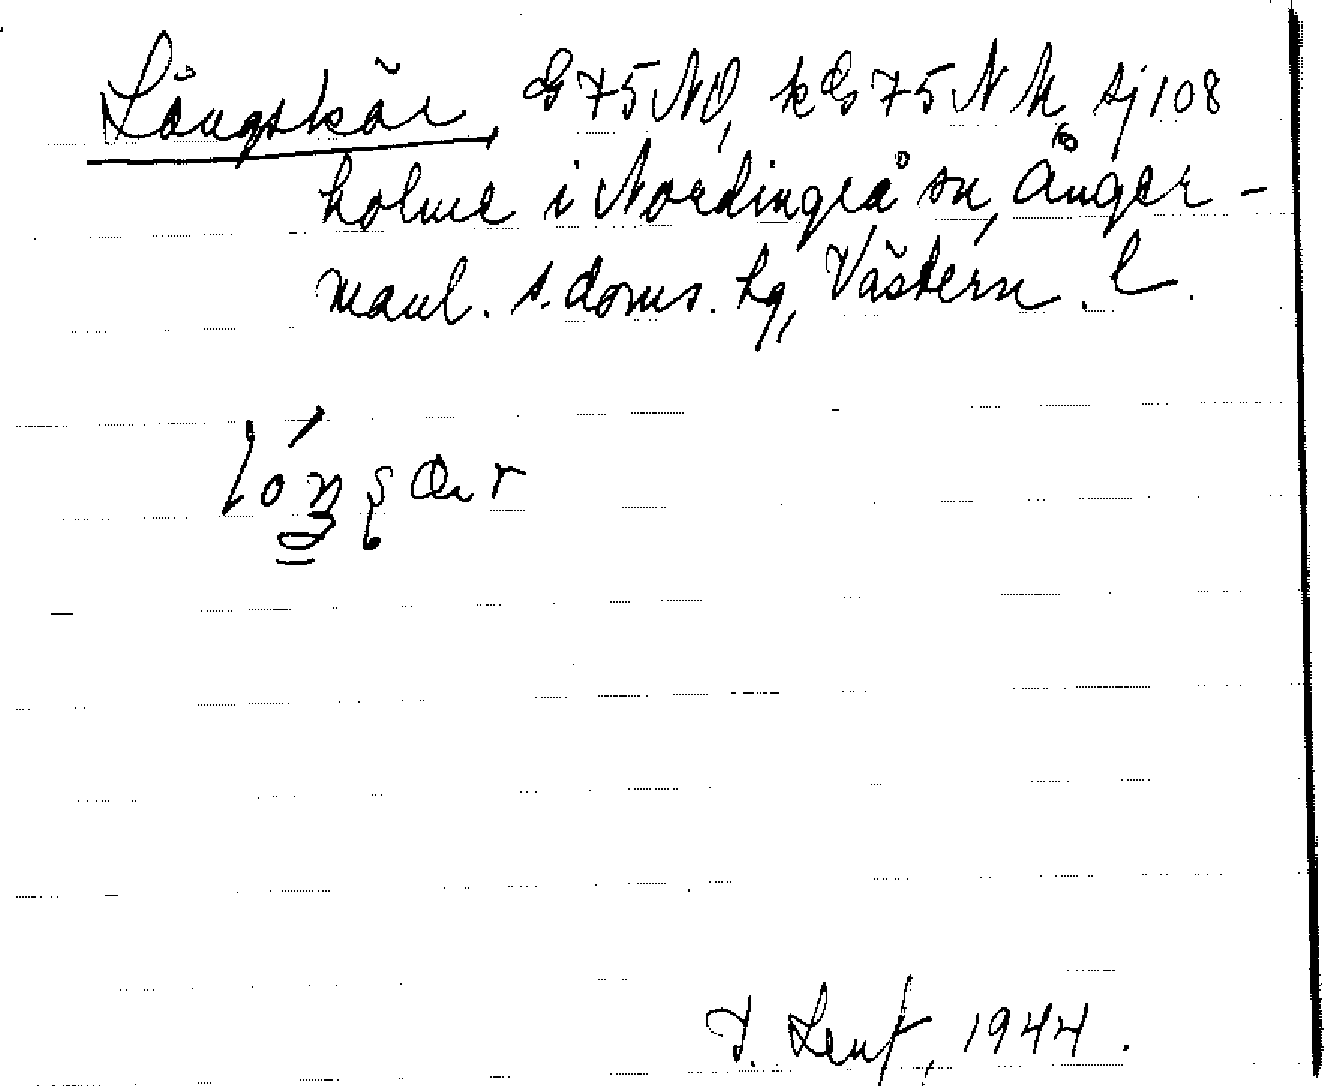 Långskär, G 75 NO, kG 75 N M, sj 108
holme i Nordingrå sn, Ånger-
manl. s. doms. hg, Västern. l.
J. Lenf, 1944.